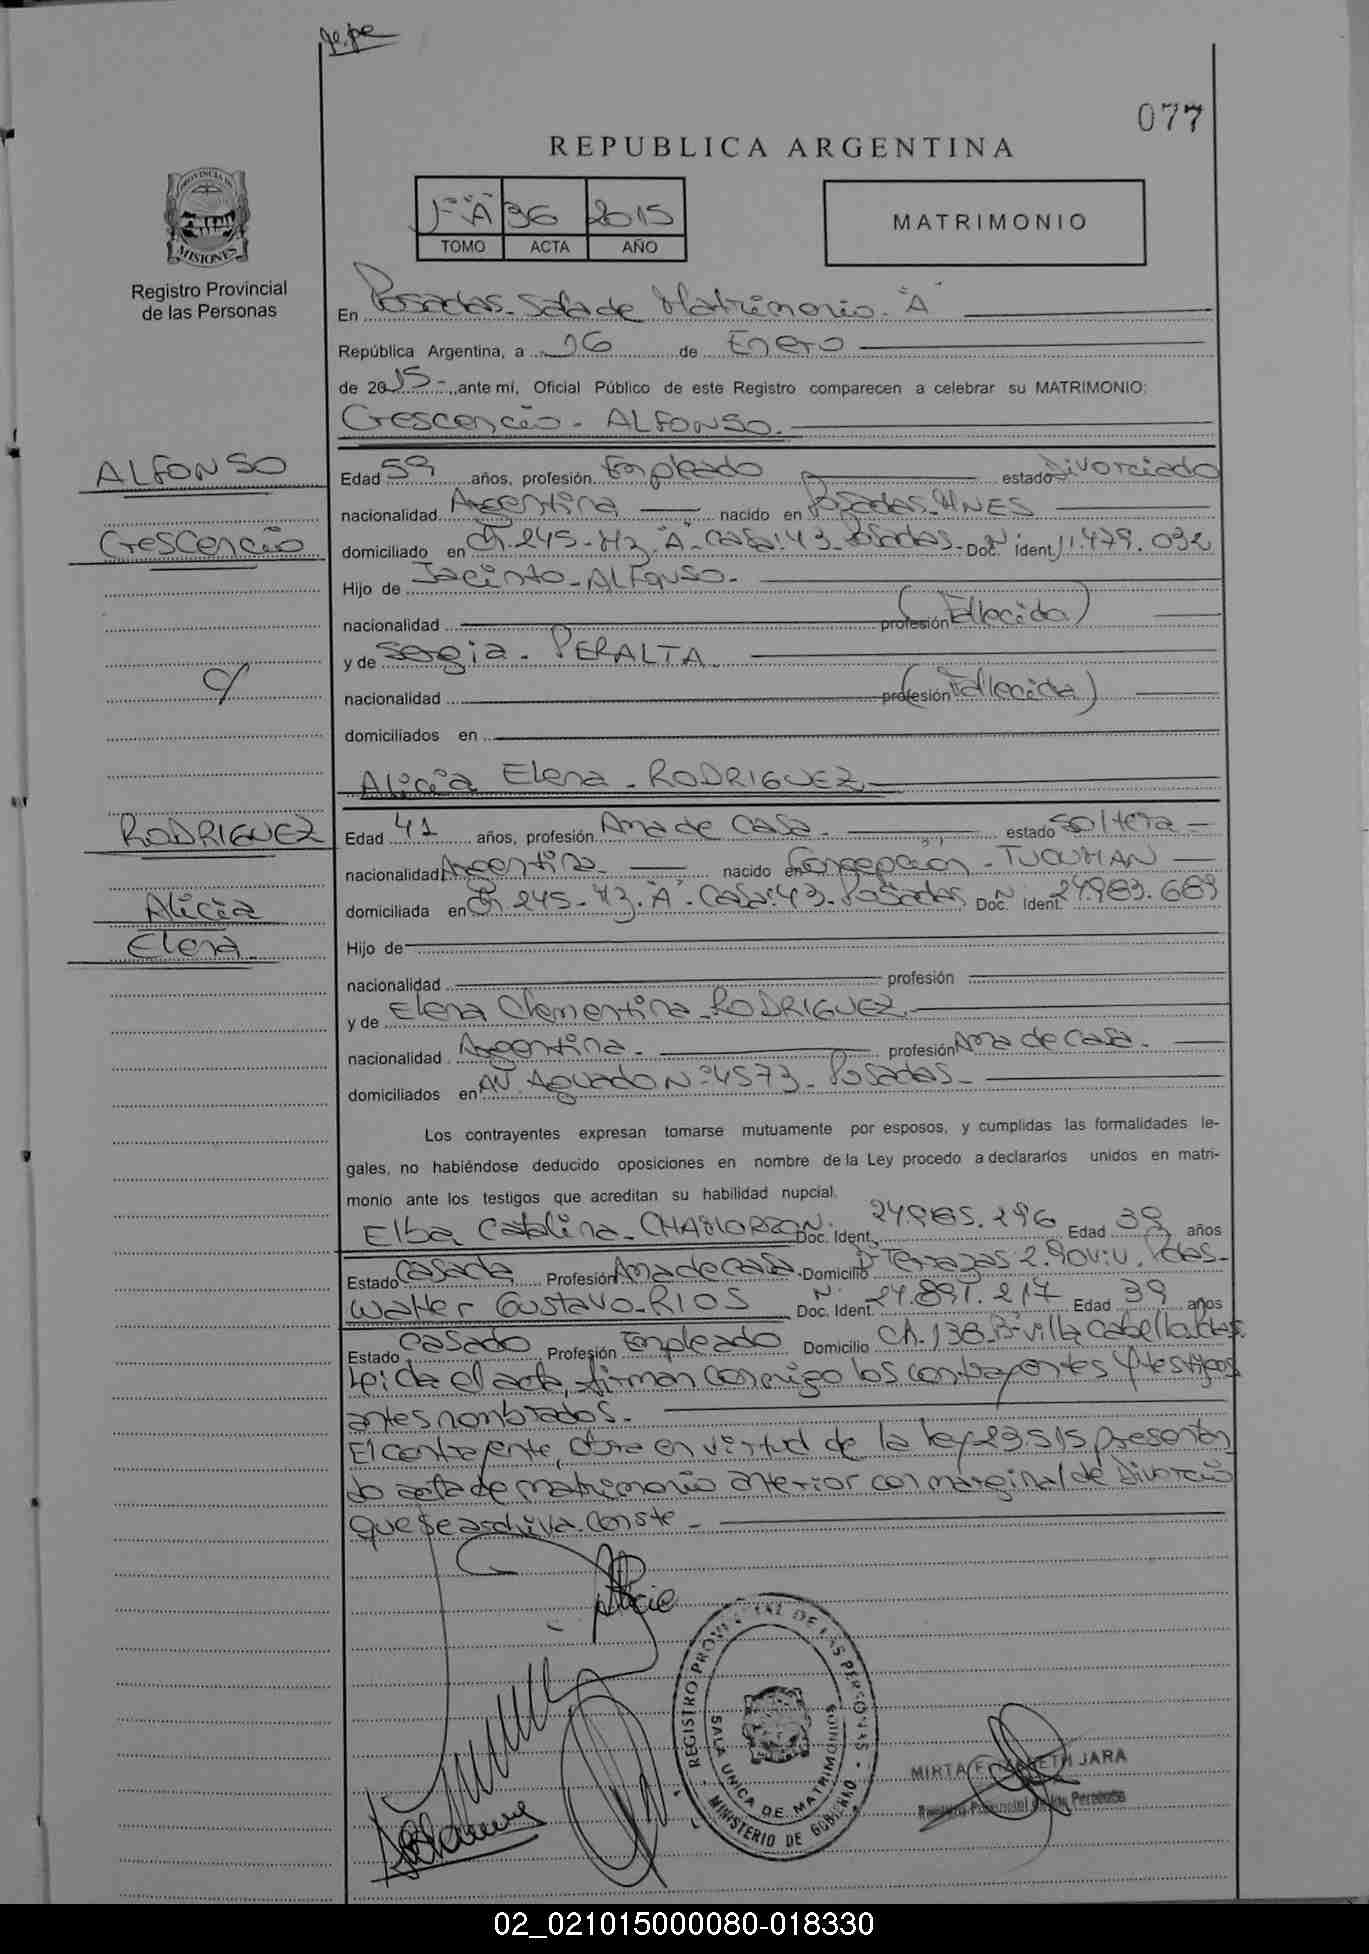 077
REPUBLICA ARGENTINA
1º "A" 36 2015
TOMO ACTA AÑO
MATRIMONIO
PROVINCIA DE
MISIONES
Registro Provincial
de las Personas
En Posadas- Sala de Matrimonio. "A"
República Argentina, a 16 de Enero
de 2015-, ante mí, Oficial Público de este Registro comparecen a celebrar su MATRIMONIO:
Crescencio - ALFONSO.
ALFONSO
Crescencio
c/
RODRIGUEZ
Alicia
Elena
Edad 59 años, profesión Empleado estado Divorciado
nacionalidad Argentina nacido en Posadas-MNES
domiciliado en Ch. 245- Mz. "A"- Casa: 43- Posadas- Doc. Nº ident. 11.479.032
Hijo de Jacinto- ALFONSO-
nacionalidad profesión (Fallecido)
y de Sergia- PERALTA
nacionalidad profesión (Fallecida)
domiciliados en
Alicia Elena - RODRIGUEZ
Edad 41 años, profesión Ama de Casa- estado Soltera-
nacionalidad Argentina- nacido en Concepcion- TUCUMAN
domiciliada en Ch. 245- Mz. "A"- Casa: 43- Posadas Doc. Nº Ident. 24.983.669
Hijo de
nacionalidad profesión
y de Elena Clementina- RODRIGUEZ
nacionalidad Argentina. profesión Ama de Casa-
domiciliados en AV Aguado Nº 4573- Posadas-
Los contrayentes expresan tomarse mutuamente por esposos, y cumplidas las formalidades le-
gales, no habiéndose deducido oposiciones en nombre de la Ley procedo a declararlos unidos en matri-
monio ante los testigos que acreditan su habilidad nupcial.
Elba Catalina- Doc. Ident. Edad 39 años
Estado Casada Profesión Ama de casa- Domicilio Bº Terrazas 2. 90 viv. Pdas-
Walter Gustavo- RIOS Doc. Nº Ident. 24.897.217 Edad 39 años
Estado Casado Profesión Empleado Domicilio CH. 138- Bº Villa Cabello. Pdas.
Leida el acta, firman conmigo los contrayentes y testigos
antes nombrados.
El contrayente, obra en virtud de la ley 23.515 presentan
do acta de matrimonio anterior con marginal de Divorcio
que se archiva. Conste-
Alicia
REGISTRO PROVINCIAL DE LAS PERSONAS
SALA UNICA DE MATRIMONIOS
MINISTERIO DE GOBIERNO
MIRTA ELIZABETH JARA
Registro Provincial de las Personas
02_021015000080-018330